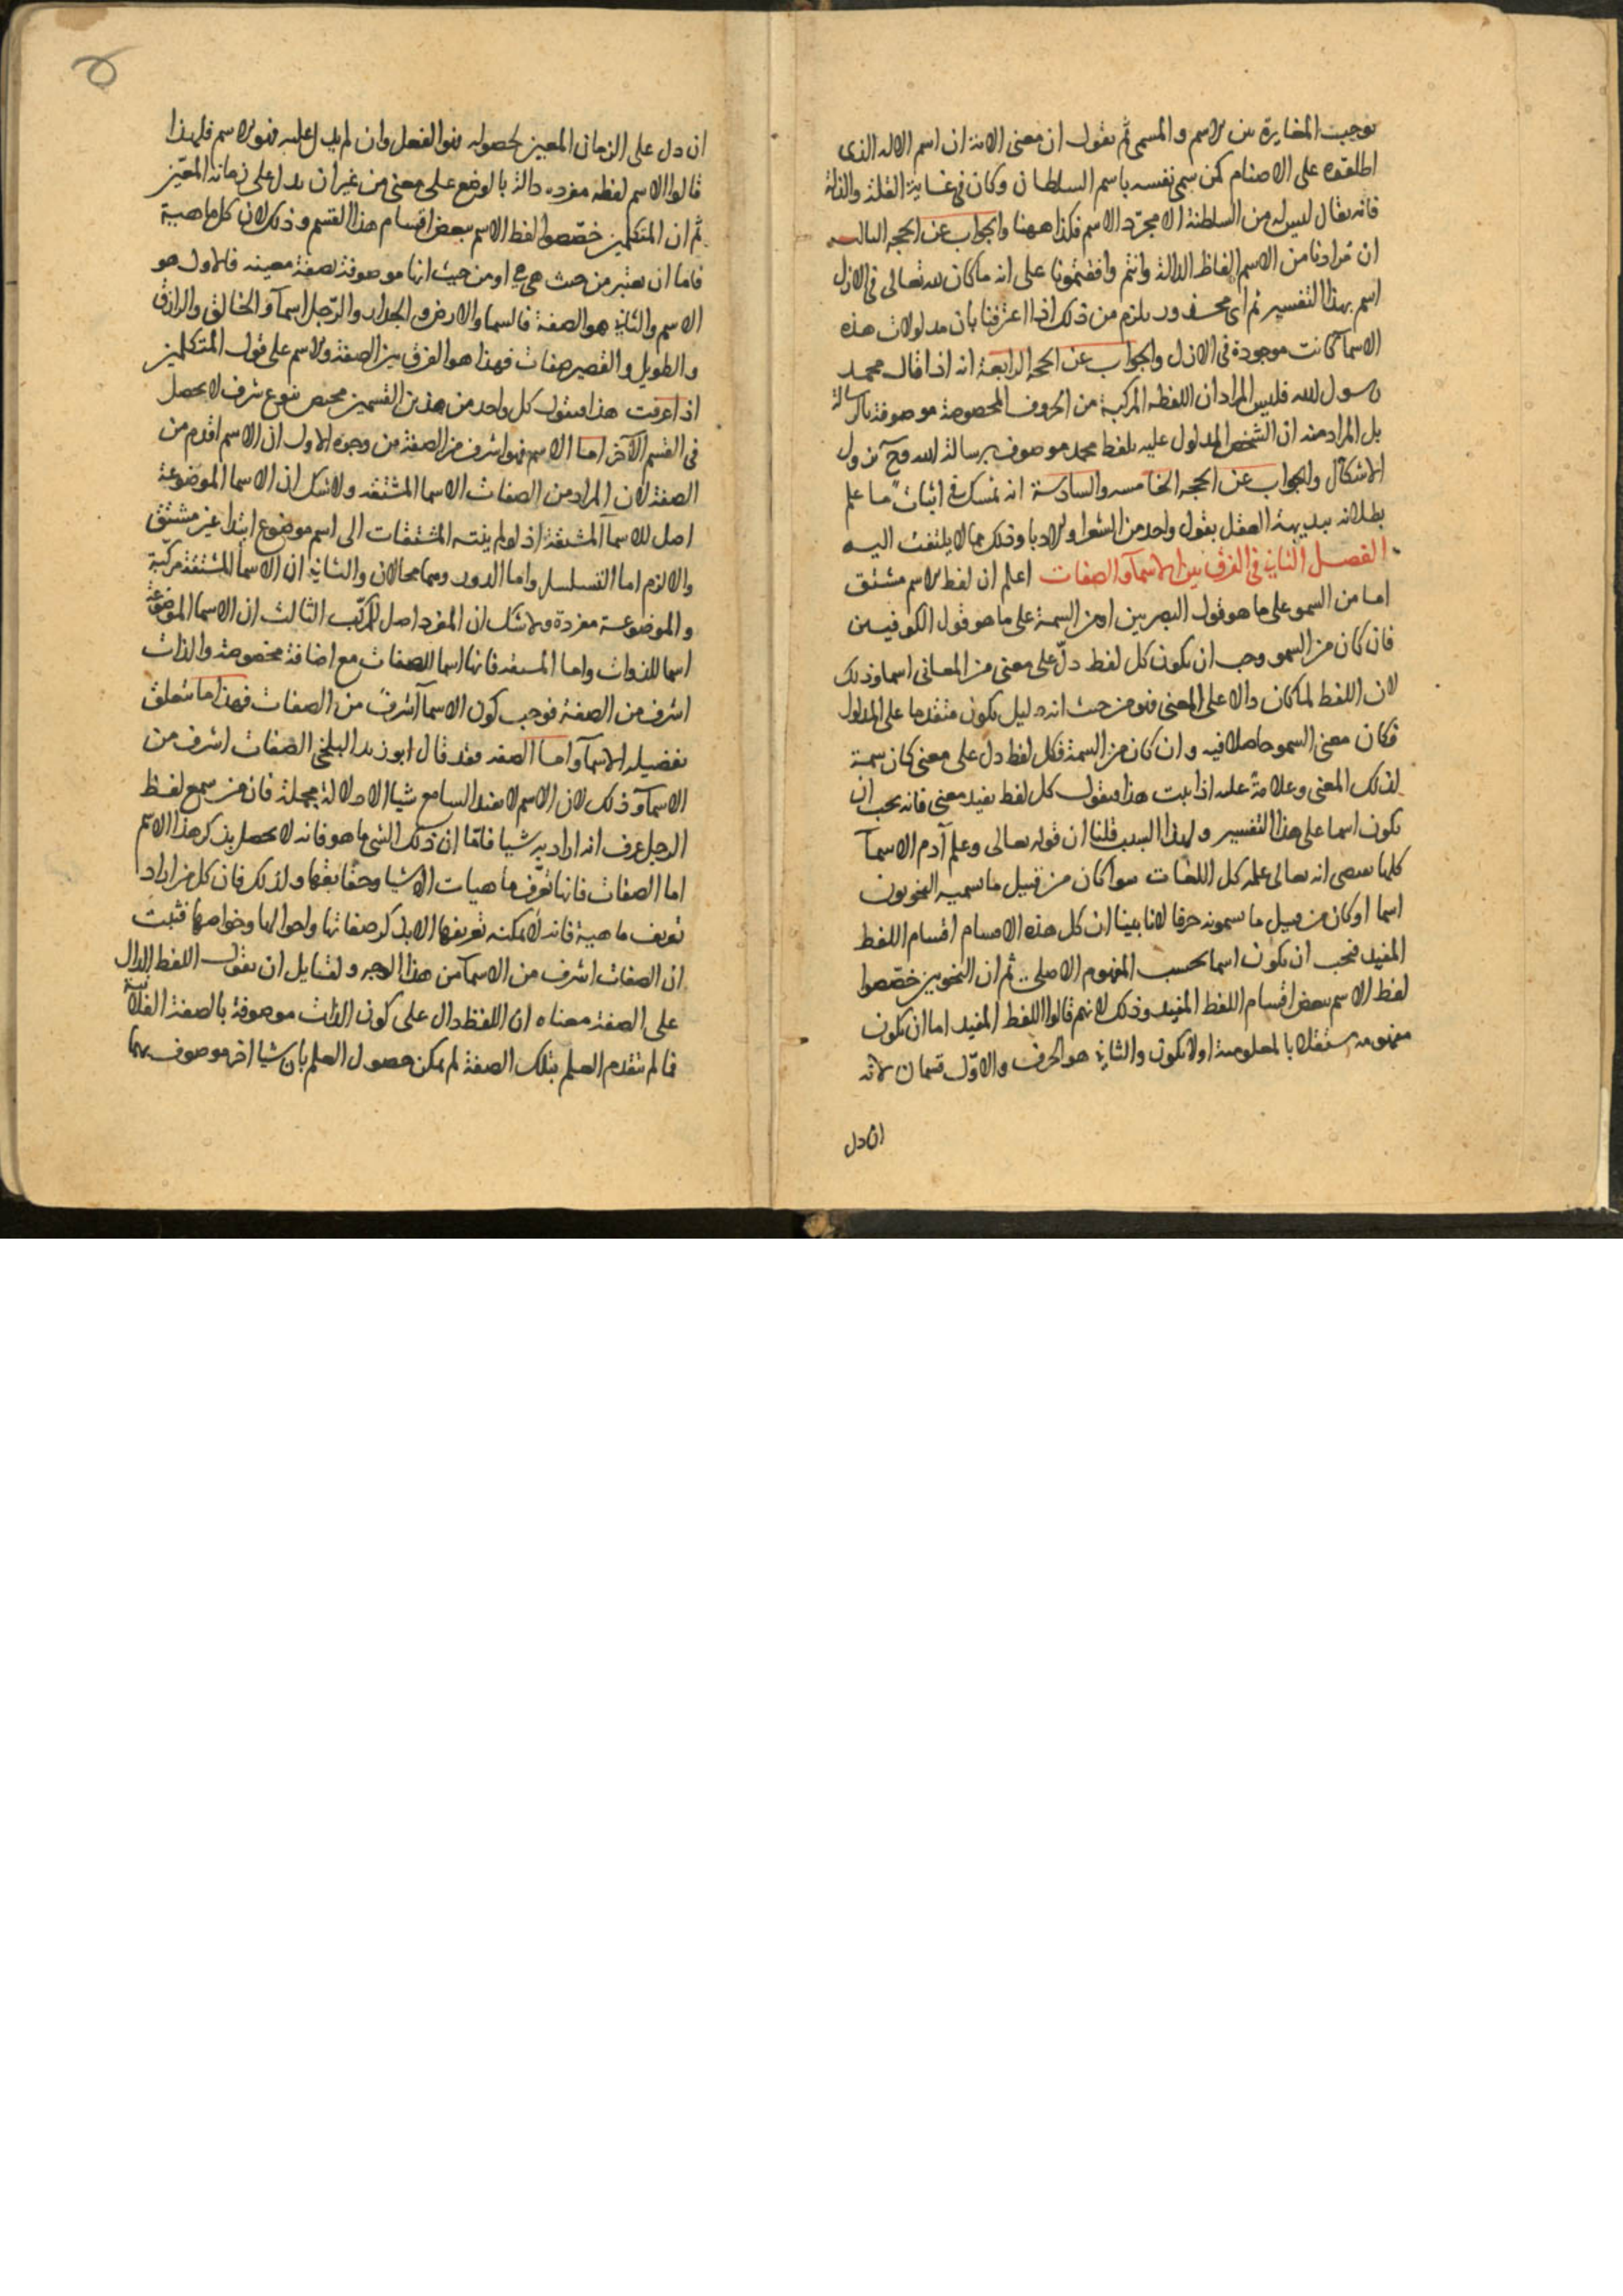 توجب المغايرة بين الاسم والمسمى ثم نقول ان معنى الاية ان اسم الاله الذى
اطلقوه على الاصنام كمن سمى نفسه باسم السلطان وكان فى غاية القلة والذلة
فانه يقال ليس له من السلطنة الا مجرد الاسم فكذا ههنا والجواب عن الحجه الثالثه
ان مرادنا من الاسم الفاظ الدالة وانتم وافقتمونا على انه ما كان لله تعالى فى الازل
اسم بهذا التفسير ثم اى محذور يلزم من ذلك اذا اعترفنا بان مدلولات هذه
الاسما كانت موجودة فى الازل والجواب عن الحجه الرابعة انه اذا قال محمد
رسول الله فليس المراد ان اللفظه المركبة من الحروف المخصوصة موصوفة بالرسالة
بل المراد منه ان الشخص المدلول عليه بلفظ محمد موصوف برسالة الله وح يزول
الاشكال والجواب عن الحجه الخامسه والسادسة انه تمسك فى اثبات ما علم
بطلانه ببديهة العقل بقول واحد من الشعرا والادبا وذلك مما لا يلتفت اليه
الفصل الثانى فى الفرق بين الاسمآ والصفات اعلم ان لفظ الاسم مشتق
اما من السمو على ما هو قول البصريين او من السمة على ما هو قول الكوفيين
فان كان من السمو وجب ان يكون كل لفظ دلّ على معنى من المعانى اسما وذلك
لان اللفظ لما كان دالا على المعنى فهو من حيث انه دليل يكون متقدما على المدلول
فكان معنى السمو حاصلا فيه وان كان من السمة فكل لفظ دل على معنى كان سمة
لذلك المعنى وعلامة عليه اذا ثبت هذا فنقول كل لفظ يفيد معنى فانه يجب ان
يكون اسما على هذا التفسير ولهذا السبب قلنا ان قوله تعالى وعلم آدم الاسمآ
كلها يقتضى انه تعالى علمه كل اللغات سوا كان من قبيل ما يسميه النحويون
اسما او كان من قبيل ما يسمونه حرفا لانا بينا ان كل هذه الاقسام اقسام اللفظ
المفيد فيجب ان يكون اسما بحسب المفهوم الاصلى ثم ان النحويين خصّصوا
لفظ الاسم ببعض اقسام اللفظ المفيد وذلك لانهم قالوا اللفظ المفيد اما ان يكون
مفهومه مستقلا بالمعلومية او لا يكون والثانى هو الحرف والاوّل قسمان لانه
ان دل
ان دل على الزمان المعين لحصوله فهو الفعل وان لم يدل عليه فهو الاسم فلهذا
قالوا الاسم لفظه مفرده دالة بالوضع على معنى من غير ان يدل على زمانه المعيّن
ثم ان المتكلمين خصّصوا لفظ الاسم ببعض اقسام هذا القسم وذلك لان كل ماهية
فاما ان يعتبر من حيث هى هى او من حيث انها موصوفة بصفة معينه فالاول هو
الاسم والثانى هو الصفة فالسما والارض والجدار والرّجل اسمآ والخالق والرازق
والطويل والقصير صفات فهذا هو الفرق بين الصفة والاسم على قول المتكلمين
اذا عرفت هذا فنقول كل واحد من هذين القسمين مختص بنوع شرف لا يحصل
فى القسم الآخر اما الاسم فهو اشرف من الصفة من وجوه الاول ان الاسم اقدم من
الصفة لان المراد من الصفات الاسما المشتقه ولا شك ان الاسما الموضوعة
اصل للاسمآ المشتقة اذ لو لم ينته المشتقات الى اسم موضوع ابتدا غير مشتق
والا لزم اما التسلسل واما الدور وهما محالان والثانى ان الاسما المشتقة مركبة
والموضوعة مفردة ولا شك ان المفرد اصل للمركّب الثالث ان الاسما الموضوعة
اسما للذوات واما المشتقه فانها اسما للصفات مع اضافة مخصوصة والذات
اشرف من الصفة فوجب كون الاسمآ اشرف من الصفات فهذا ما يتعلق
بتفضيل الاسمآ واما الصفه فقد قال ابو زيد البلخى الصفات اشرف من
الاسمآ وذلك لان الاسم لا يفيد السامع شيا الا دلالة مجملة فان من سمع لفظ
الرجل عرف انه اراد به شيا فاما ان ذلك الشى ما هو فانه لا يحصل بذكر هذا الاسم
اما الصفات فانها تعرّف ماهيات الاشيا وحقايقها ولذلك فان كل من اراد
تعريف ماهية فانه لا يمكنه تعريفها الا بذكر صفاتها واحوالها وخواصها فثبت
ان الصفات اشرف من الاسمآ من هذا الوجه ولقايل ان يقول اللفظ الدال
على الصفة معناه ان اللفظ دال على كون الذات موصوفة بالصفة الفلانية
فما لم يتقدم العلم بتلك الصفة لم يمكن حصول العلم بان شيا اخر موصوف بها